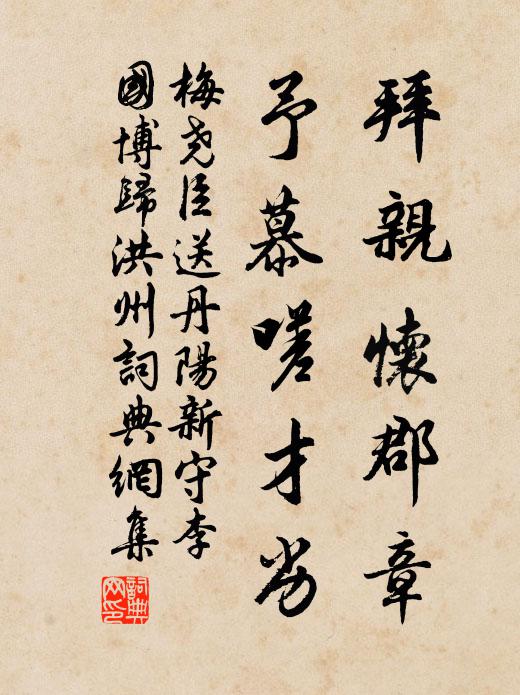 拜親懷郡章
予慕嗟才劣
梅尧臣送丹陽新守李
國博歸洪州詞典網集